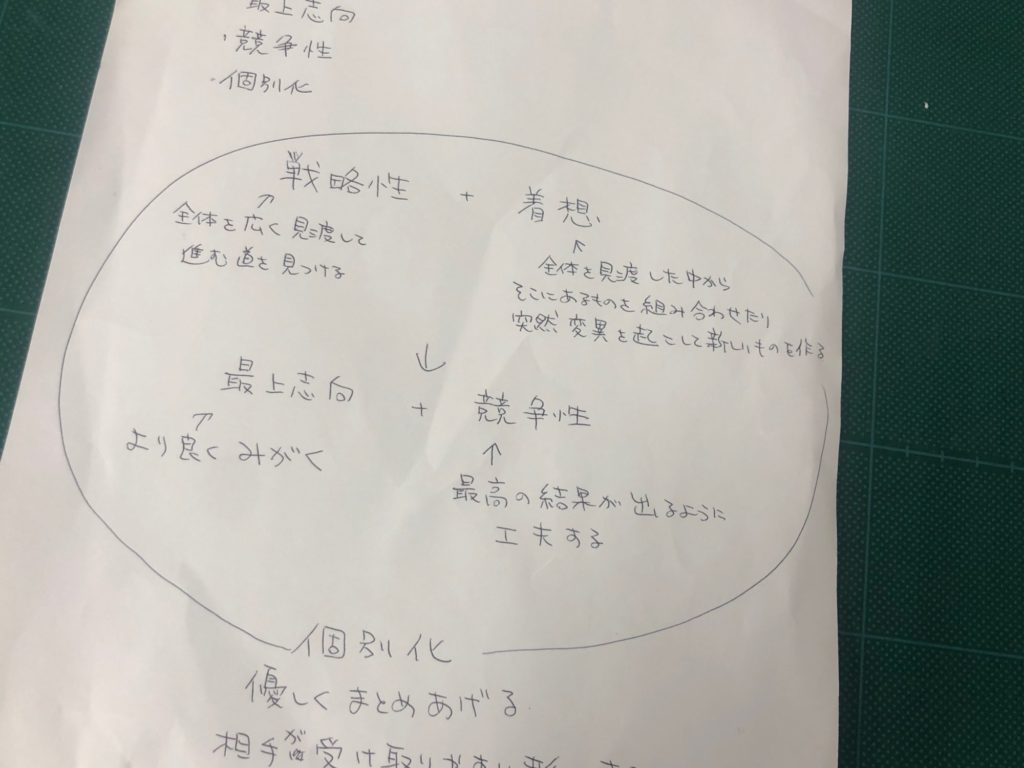 最上志向
・競争性
・個別化
戦略性 + 着想
↗
全体を広く見渡して
進む道を見つける
↖
全体を見渡した中から
そこにあるものを組み合わせたり
突然変異を起こして新しいものを作る
↓
最上志向 + 競争性
↗
より良くみがく
↑
最高の結果が出るように
工夫する
個別化
優しくまとめあげる
相手が受け取り